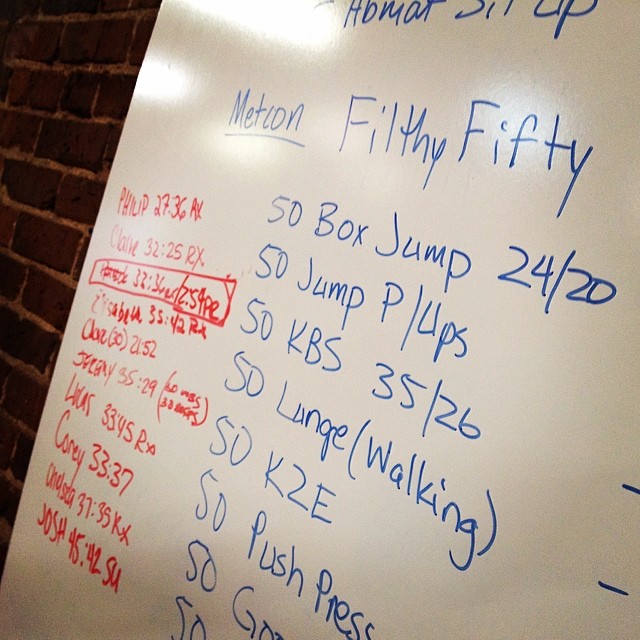 Abmat Sit Up
Metcon Filthy Fifty
50 Box Jump 24/20
50 Jump P/Ups
50 KBS 35/26
50 Lunge (Walking)
50 K2E
50 Push Press
50
50
PHILIP 27:36 RX
Claire 32:25 RX
Elisabeth 35:42 Rx
Claire (30) 21:52
JEREMY 35:29
LUCAS 33:45 Rx
Corey 33:37
Chelsea 37:35 RX
JOSH 45:42